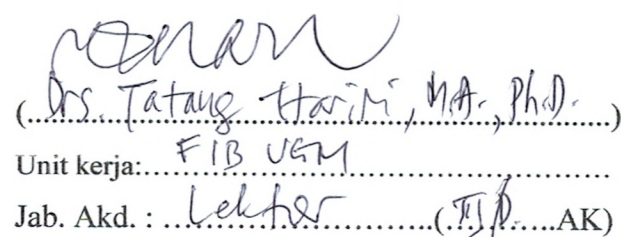 (Drs. Tatang Hariri, M.A., Ph.D.)
Unit kerja: FIB UGM
Jab. Akd. : Lektor (III/D AK)